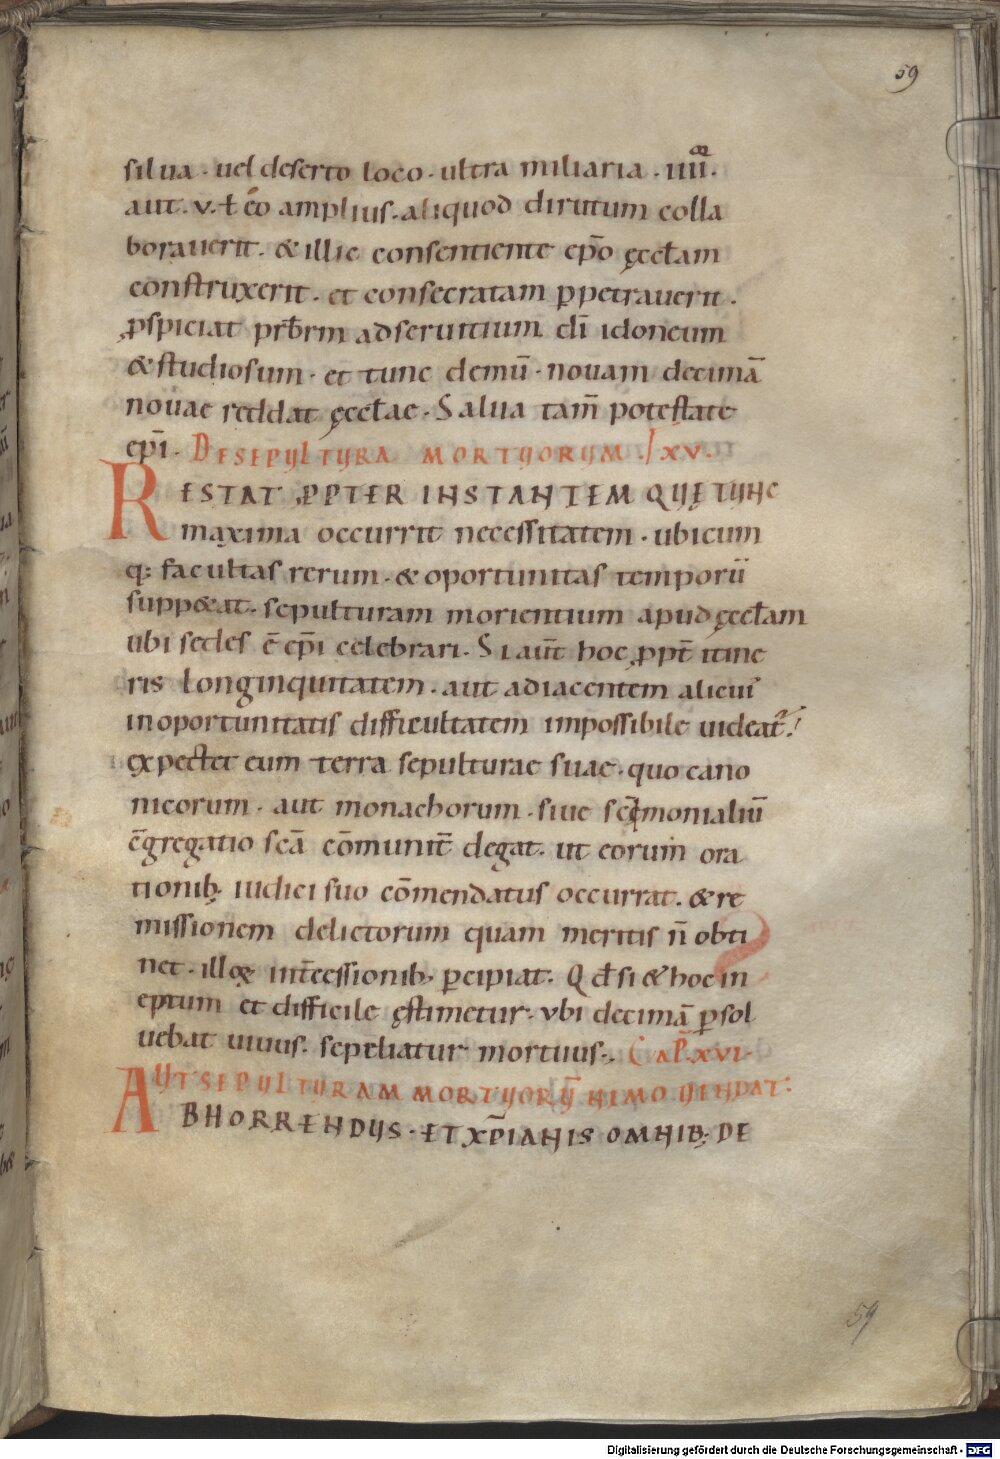 59
silua · uel deserto loco · ultra miliaria · iiii ·
aut · v · ł eo amplius · aliquod dirutum colla
borauerit · & illic consentiente ep̄o ęccł̄am
construxerit · et consecratam ꝑpetrauerit ·
ꝓspiciat pr̄b̄rm ad seruitium di̅ idoneum
& studiosum · et tunc demū · nouam decimā
nouae reddat ęccł̄ae · Salua tam̄ potestate
ep̄i · DE SEPULTURA MORTUORUM · XV ·
RESTAT ꝒPTER INSTANTEM QUĘ TUNC
maxima occurrit necessitatem · ubicum
q: facultas rerum · & oportunitas temporū
supp&at · sepulturam morientium apud ęccł̄am
ubi sedes ē ep̄i celebrari · Si aut̄ hoc ꝓpt̄ itine
ris longinquitatem · aut adiacentem alicui᾽
inoportunitatis difficultatem impossibile uideat᷑
expectet eum terra sepulturae suae · quo cano
nicorum · aut monachorum · siue sc̄īmonialiū
c̄gregatio sc̄ā cōmunit̄ degat · ut eorum ora
tionib; iudici suo cōmendatus occurrat · & re
missionem delictorum quam meritis n̄ obti
net · illoꝝ int̄cessionib; ꝑcipiat · Qđ si & hoc in
eptum et difficile ęstimetur · vbi decimā ꝑsol
uebat uiuus · sepeliatur mortuus · CAP̄ · XVI ·
UT SEPULTURAM MORTUORŪ NEMO UENDAT:
ABHORRENDUS · ET XP̄IANIS OMNIB; DE
59
Digitalisierung gefördert durch die Deutsche Forschungsgemeinschaft - DFG